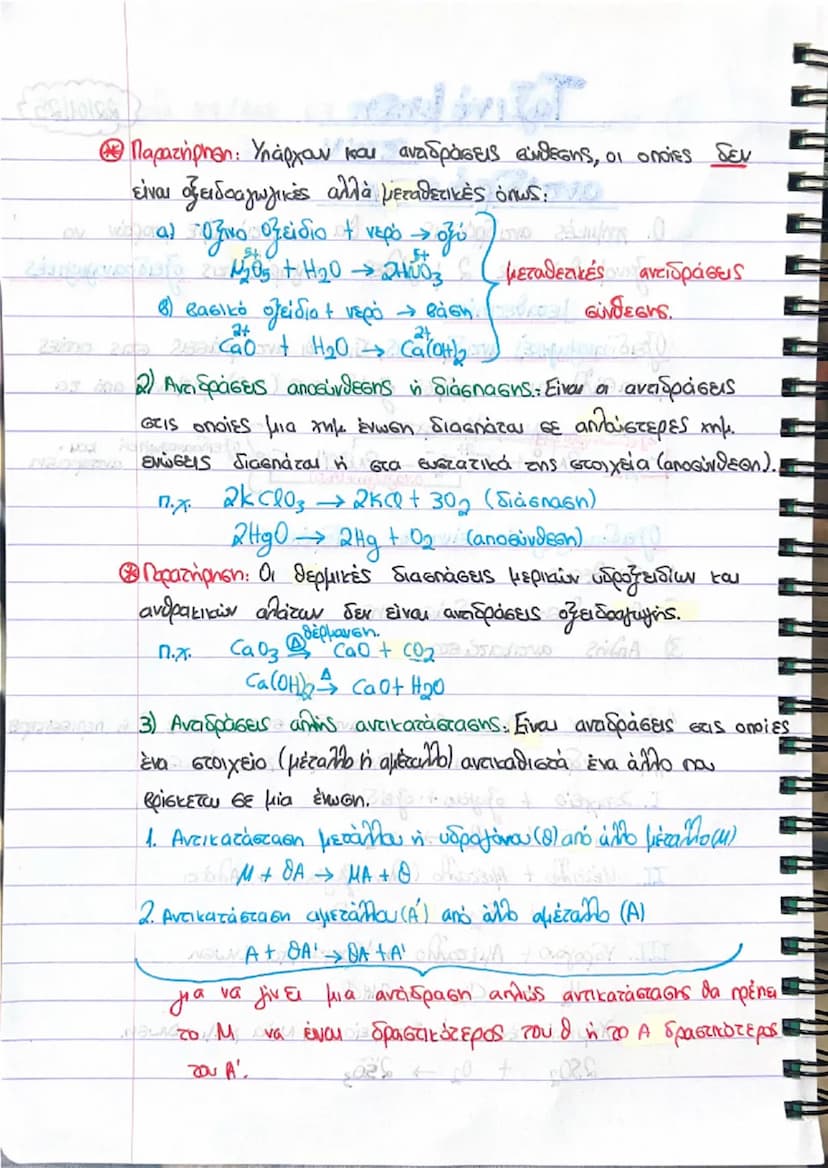 ⊛ Παρατήρηση: Υπάρχουν και αντιδράσεις σύνθεσης, οι οποίες δεν
είναι οξειδοαγωγικές αλλά μεταθετικές όπως:
α) Όξινο οξείδιο + νερό → οξύ
5+ 5+
N₂O₅ + H₂O → 2HNO₃
μεταθετικές αντιδράσεις
σύνθεσης.
β) βασικό οξείδιο + νερό → βάση
2+ 2+
CaO + H₂O → Ca(OH)₂
2) Αντιδράσεις αποσύνθεσης ή διάσπασης: Είναι οι αντιδράσεις
στις οποίες μια χημ. ένωση διασπάται σε απλούστερες χημ.
ενώσεις διασπάται ή στα συστατικά της στοιχεία (αποσύνθεση).
π.χ. 2KClO₃ → 2KCl + 3O₂ (διάσπαση)
2HgO → 2Hg + O₂ (αποσύνθεση)
⊛ Παρατήρηση: Οι θερμικές διασπάσεις μερικών υδροξειδίων και
ανθρακικών αλάτων δεν είναι αντιδράσεις οξειδοαγωγής.
θέρμανση.
π.χ. CaO₃ Δ→ CaO + CO₂
Ca(OH)₂ Δ→ CaO + H₂O
3) Αντιδράσεις απλής αντικατάστασης: Είναι αντιδράσεις στις οποίες
ένα στοιχείο (μέταλλο ή αμέταλλο) αντικαθιστά ένα άλλο που
βρίσκεται σε μία ένωση.
1. Αντικατάσταση μετάλλου ή υδρογόνου (Θ) από άλλο μέταλλο (Μ)
Μ + ΘΑ → ΜΑ + Θ
2. Αντικατάσταση αμετάλλου (Α') από άλλο αμέταλλο (Α)
Α + ΘΑ' → ΘΑ + Α'
για να γίνει μια αντίδραση απλής αντικατάστασης θα πρέπει
το Μ να είναι δραστικότερος του Θ ή το Α δραστικότερος
του Α'.